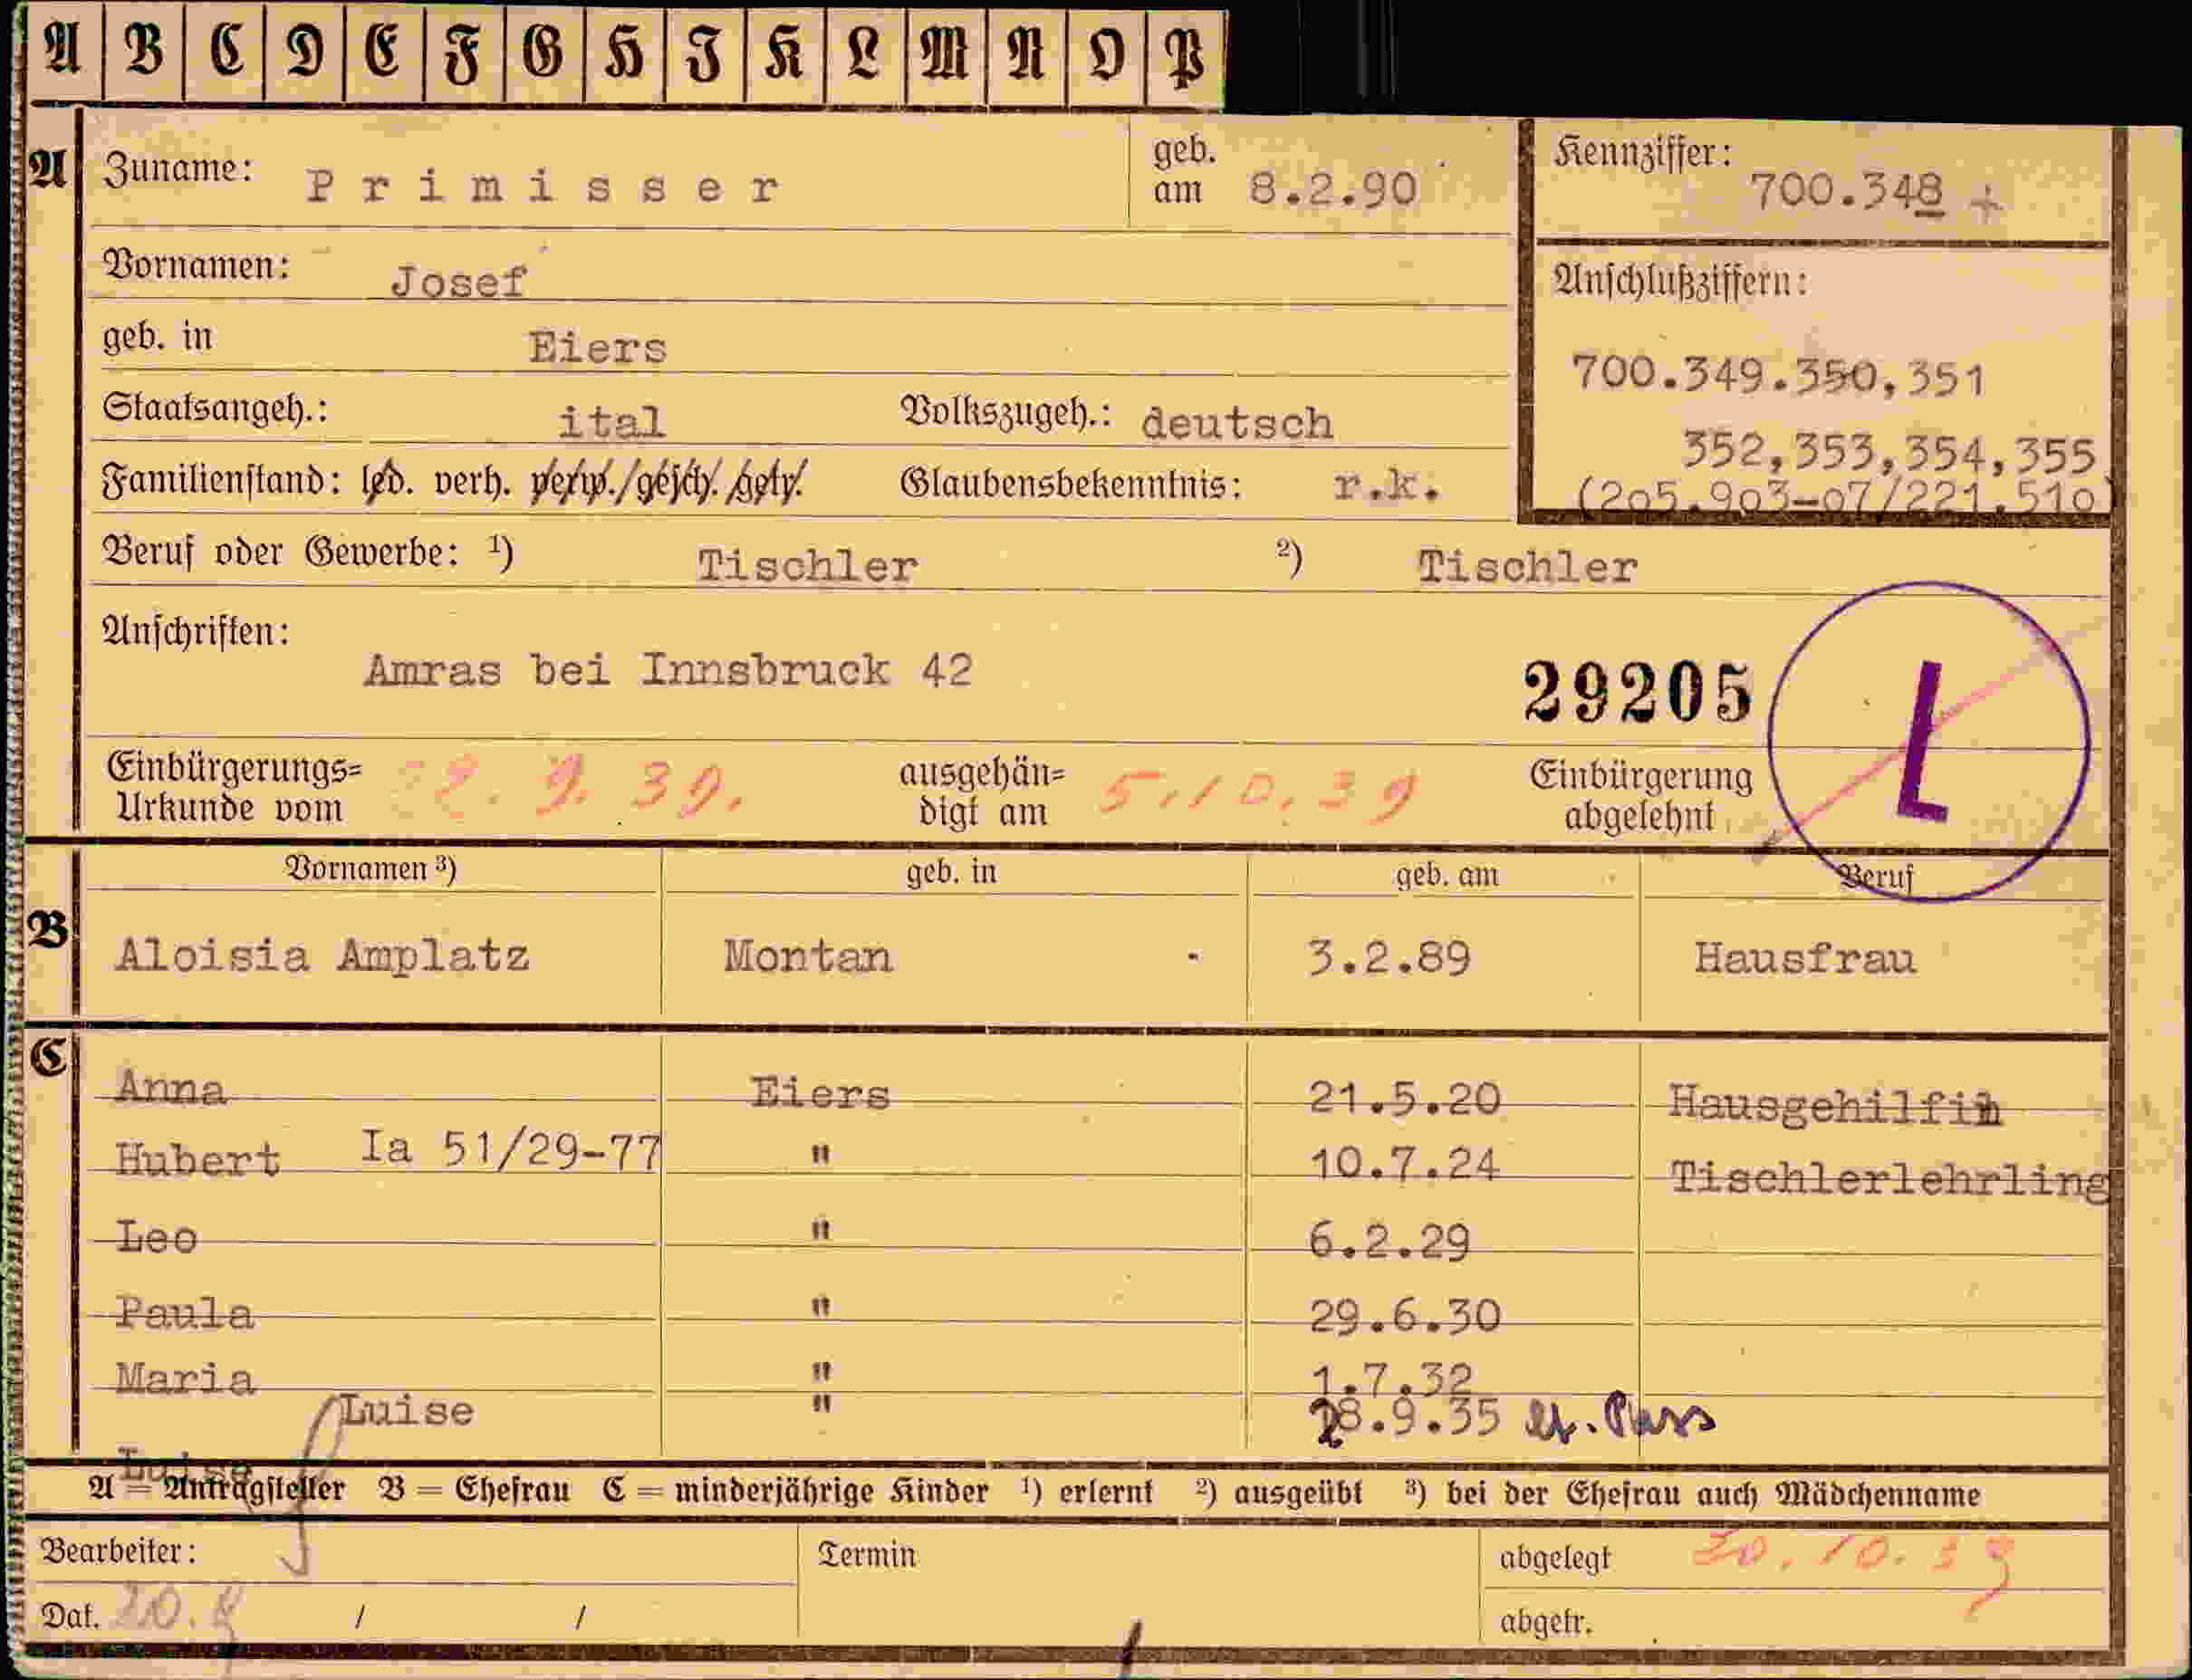 A B C D E F G H I K L M N O P
A Zuname: Primisser geb. am 8.2.90 Kennziffer: 700.348 +
Vornamen: Josef Anschlußziffern:
geb. in Eiers 700.349.350,351
Staatsangeh.: ital Volkszugeh.: deutsch 352,353,354,355
Familienstand: led. verh. verw./gesch./getr. Glaubensbekenntnis: r.k. (205.903-07/221.510)
Beruf oder Gewerbe: 1) Tischler 2) Tischler
Anschriften:
Amras bei Innsbruck 42 29205 L
Einbürgerungs= Urkunde vom 9. 39. ausgehän= digt am 5.10.39 Einbürgerung abgelehnt
Vornamen 3) geb. in geb. am Beruf
B Aloisia Amplatz Montan 3.2.89 Hausfrau
C Anna Eiers 21.5.20 Hausgehilfin
Hubert Ia 51/29-77 " 10.7.24 Tischlerlehrling
Leo " 6.2.29
Paula " 29.6.30
Maria " 1.7.32
Luise " 28.9.35 Pass
Luise
A = Antragsteller B = Ehefrau C = minderjährige Kinder 1) erlernt 2) ausgeübt 3) bei der Ehefrau auch Mädchenname
Bearbeiter: Termin abgelegt 20.10.39
Dat. 20.9 / / abgetr.